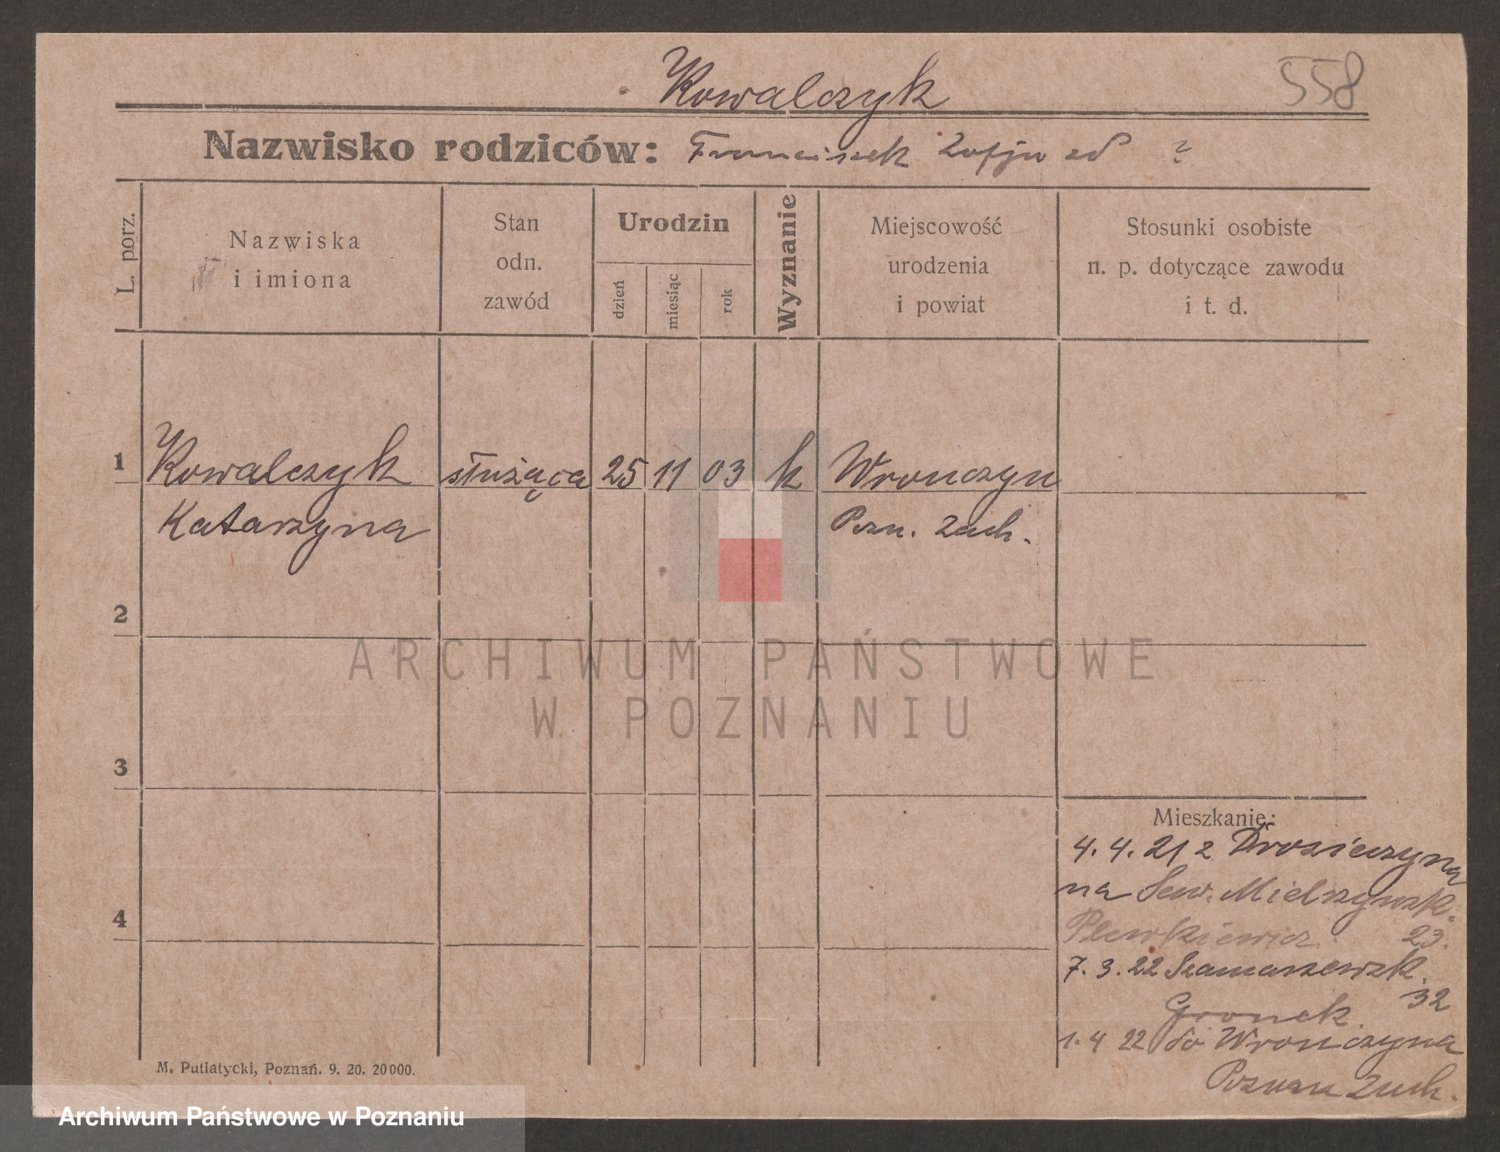 Kowalczyk
558
Nazwisko rodziców: Franciszek Zofja zd ?
L. porz.
Nazwiska
i imiona
Stan
odn.
zawód
Urodzin
dzień
miesiąc
rok
Wyznanie
Miejscowość
urodzenia
i powiat
Stosunki osobiste
n. p. dotyczące zawodu
i t. d.
1
Kowalczyk
Katarzyna
służąca
25
11
03
k
Wronczyn
Pozn. Zach.
2
3
4
ARCHIWUM PAŃSTWOWE
W POZNANIU
Mieszkanie:
4. 4. 21 z
na Sew. Mielżyńsk.
23.
7. 3. 22 Szamarzewsk.
32
Gronek
1. 4 22 do Wronczyna
Poznań Zach.
M. Putiatycki, Poznań. 9. 20. 20000.
Archiwum Państwowe w Poznaniu